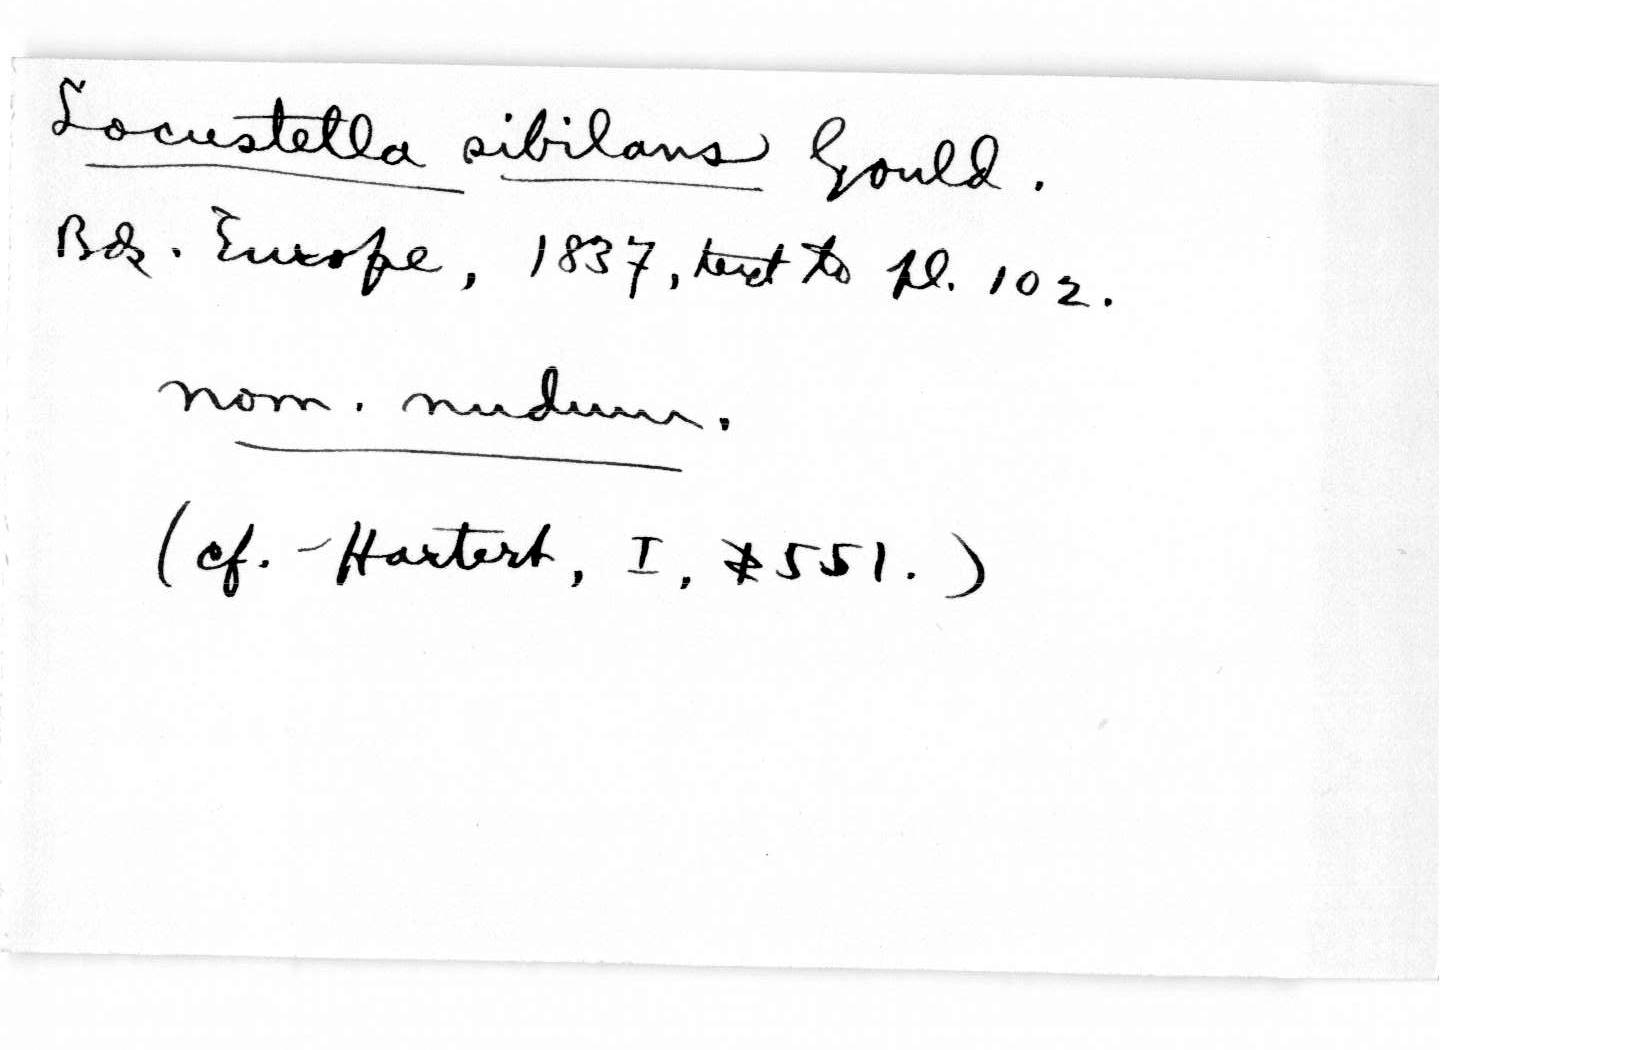 Locustella sibilans Gould.
Bds. Europe, 1837, text to pl. 102.
nom. nudum.
(cf. Hartert, I, p 551.)